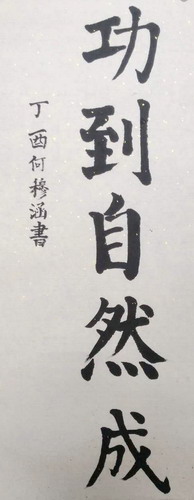 功到自然成
丁酉何穆涵書